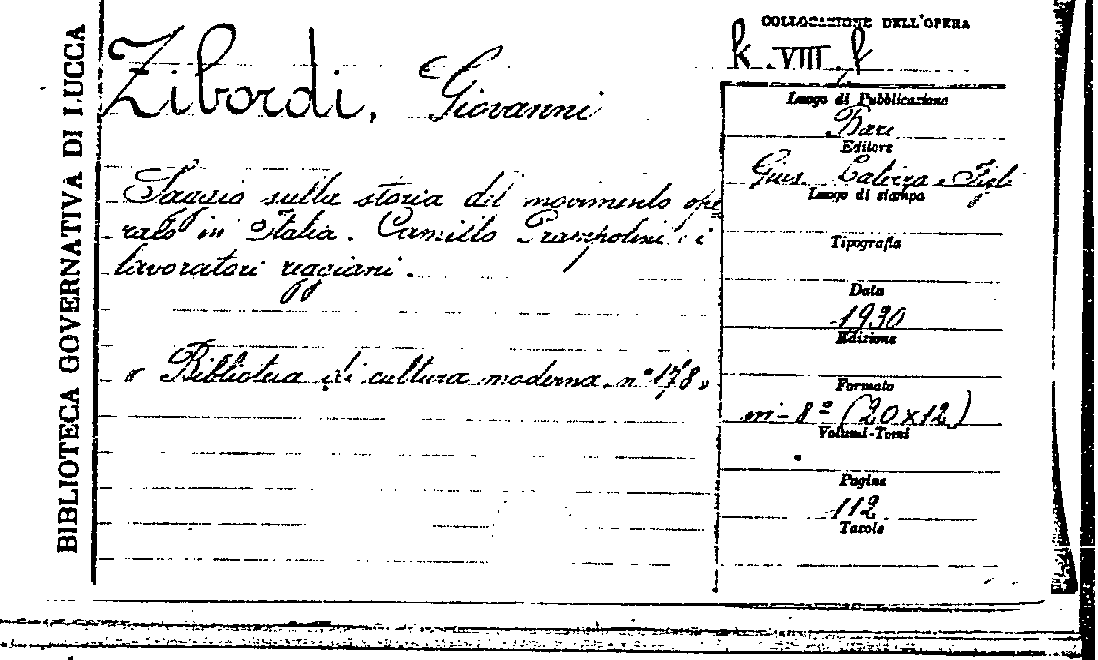 BIBLIOTECA GOVERNATIVA DI LUCCA
Zibordi, Giovanni
Saggio sulla storia del movimento ope
raio in Italia. Camillo Prampolini e i
lavoratori reggiani.
« Biblioteca di cultura moderna. n° 178 »
COLLOCAZIONE DELL'OPERA
k. VIII. f
Luogo di Pubblicazione
Bari
Editore
Gius. Laterza e Figli
Luogo di stampa
Tipografia
Data
1930
Edizione
Formato
in-8º (20x12)
Volumi-Tomi
Pagine
112
Tavole